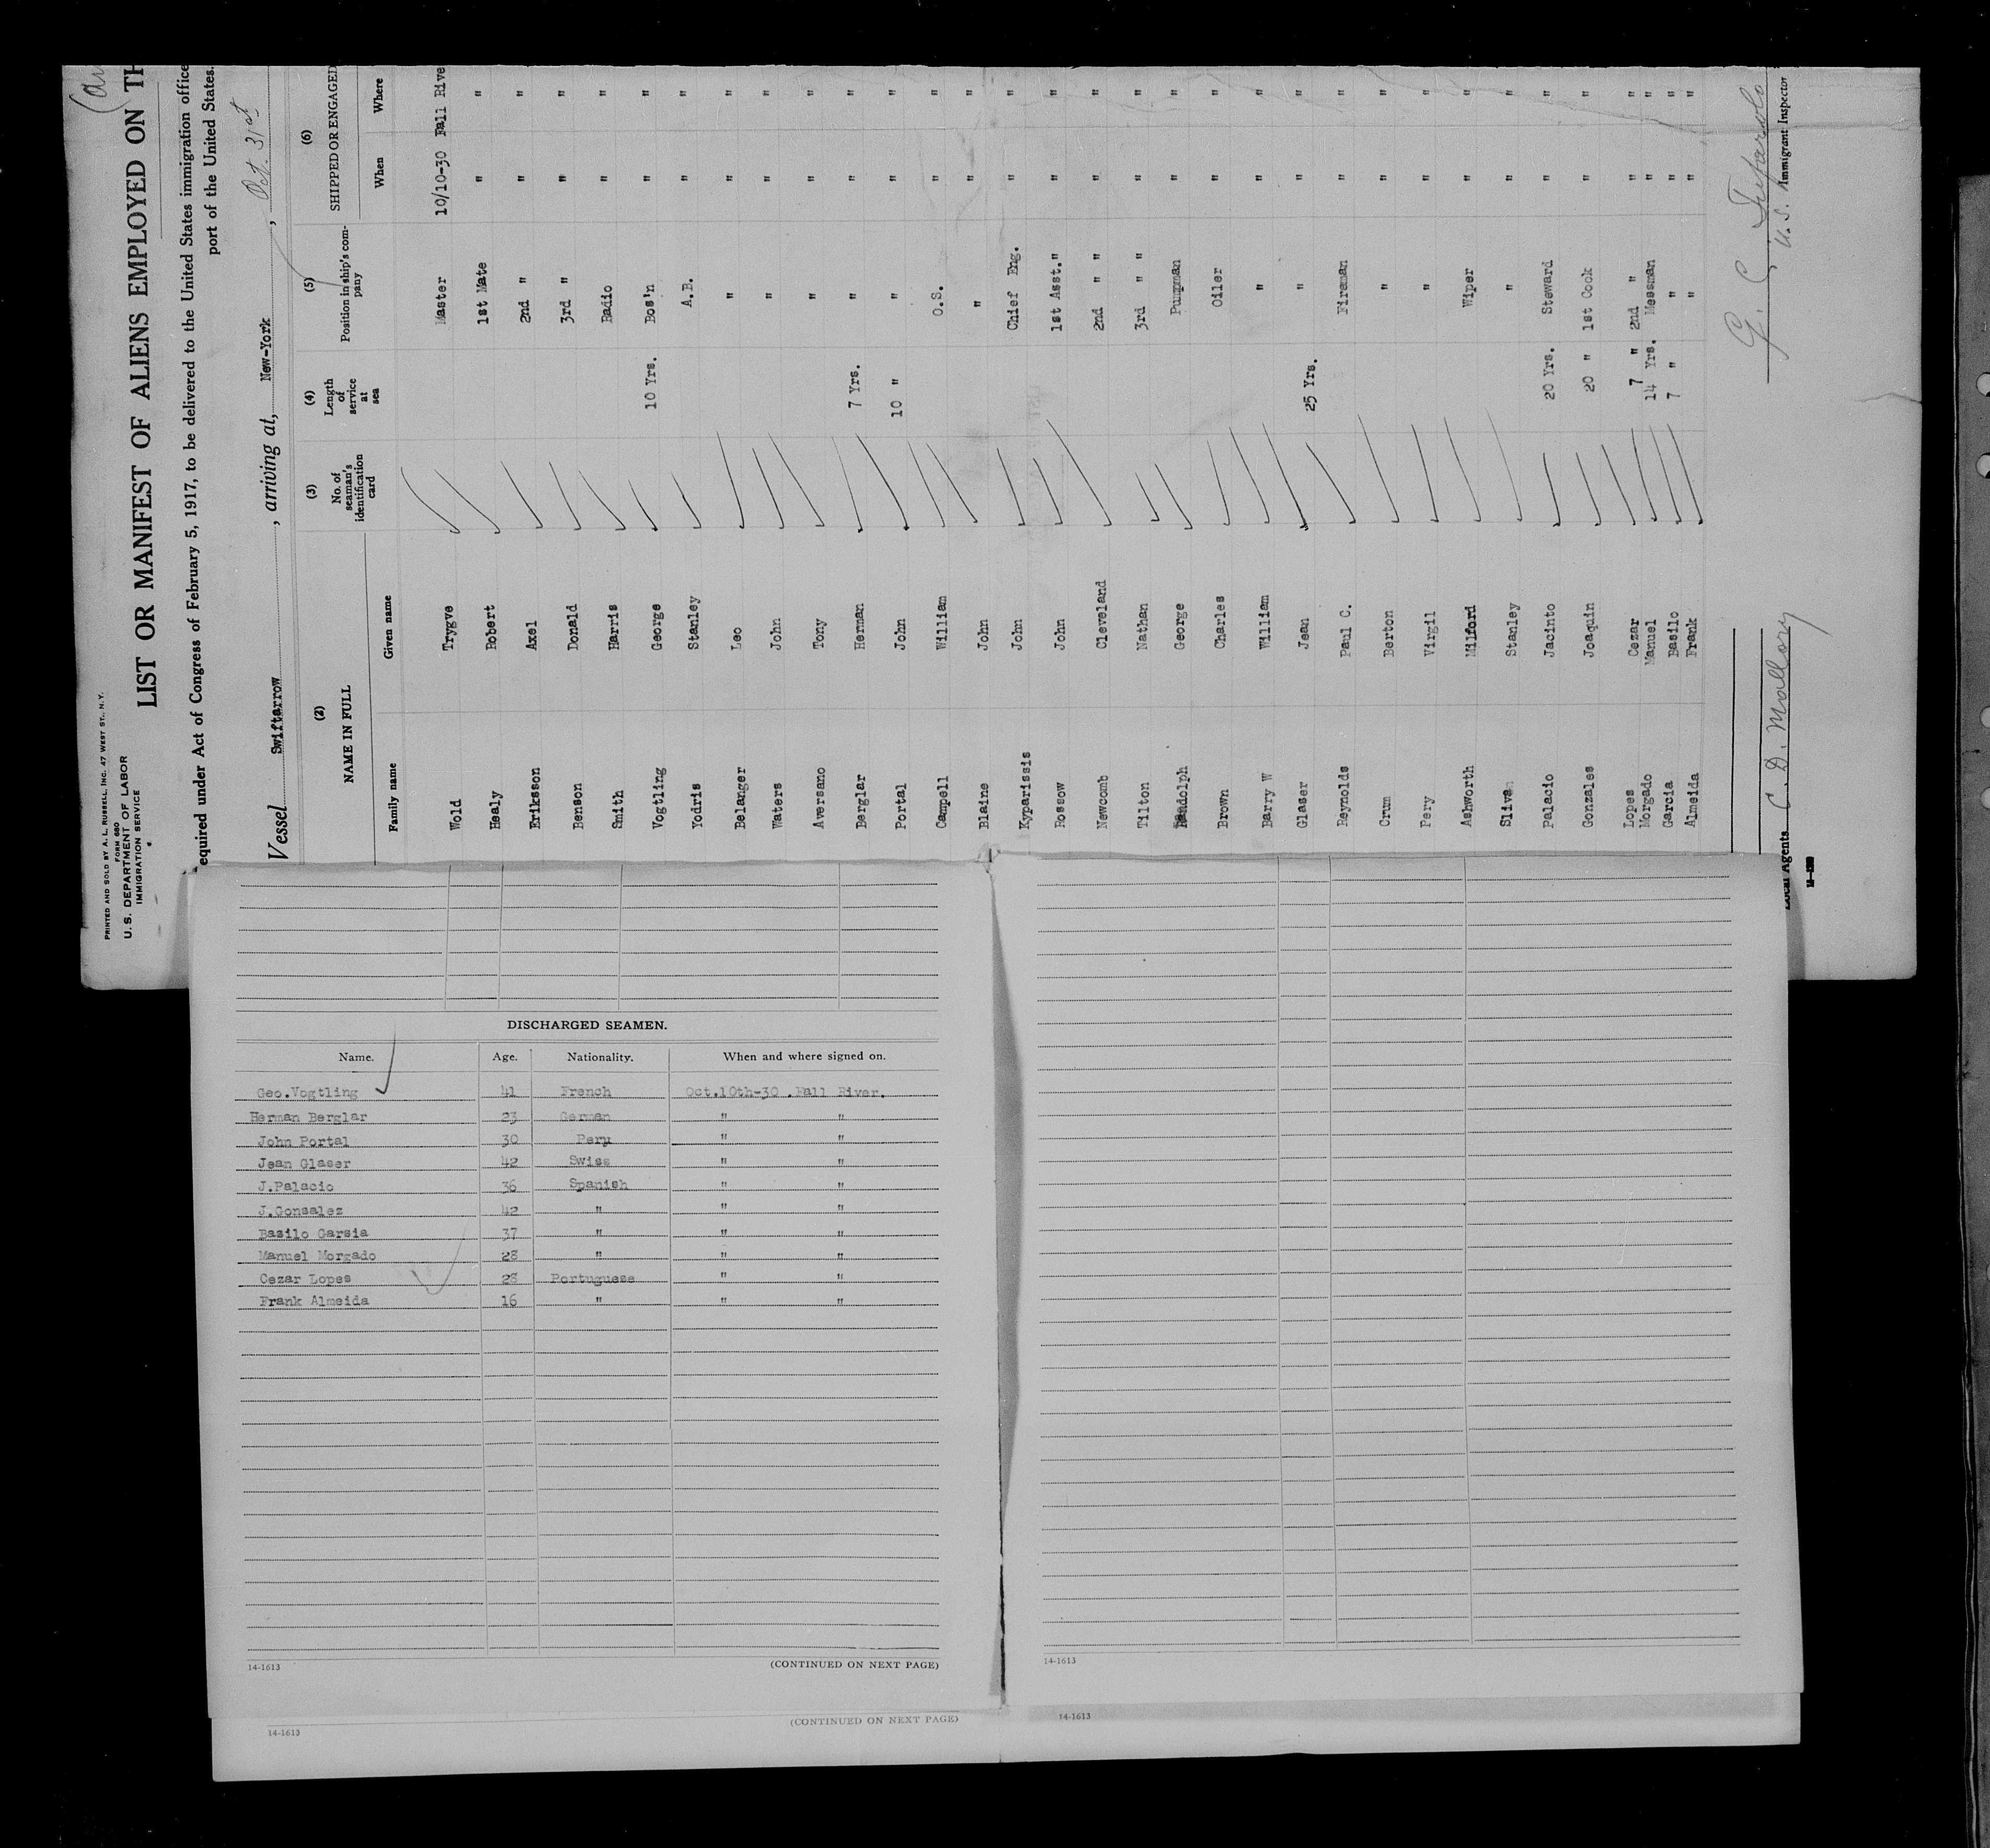 PRINTED AND SOLD BY A. L. RUSSELL, INC. 47 WEST ST., N.Y.
FORM 680
U. S. DEPARTMENT OF LABOR
IMMIGRATION SERVICE
LIST OR MANIFEST OF ALIENS EMPLOYED ON TH
equired under Act of Congress of February 5, 1917, to be delivered to the United States immigration office
port of the United States.
Vessel Swiftarrow , arriving at, New-York , Oct. 31st
(2) (3) (4) (5) (6)
NAME IN FULL No. of seaman's identification card Length of service at sea Position in ship's company SHIPPED OR ENGAGED
Family name Given name When Where
Wold Trygve Master 10/10-30 Fall Rive
Healy Robert 1st Mate " "
Eriksson Axel 2nd " " "
Benson Donald 3rd " " "
Smith Harris Radio " "
Vogtling George 10 Yrs. Bos'n " "
Yodris Stanley A.B. " "
Belanger Leo " " "
Waters John " " "
Aversano Tony " " "
Berglar Herman 7 Yrs. " " "
Portal John 10 " " " "
Campell William O.S. " "
Blaine John " " "
Kyparissis John Chief Eng. " "
Rossow John 1st Asst." " "
Newcomb Cleveland 2nd " " " "
Tilton Nathan 3rd " " " "
Randolph George Pumpman " "
Brown Charles Oiler " "
Barry W William " " "
Glaser Jean 25 Yrs. " " "
Reynolds Paul C. Fireman " "
Crum Berton " " "
Pery Virgil " " "
Ashworth Milford Wiper " "
Slivan Stanley " " "
Palacio Jacinto 20 Yrs. Steward " "
Gonzales Joaquin 20 " 1st Cook " "
Lopes Cezar 7 " 2nd " " "
Morgado Manuel 14 Yrs. Messman " "
Garcia Basilo 7 " " " "
Almeida Frank " " "
Local Agents C. D. Mallory
U. S. Immigrant Inspector
DISCHARGED SEAMEN.
Name. Age. Nationality. When and where signed on.
Geo.Vogtling 41 French Oct.10th-30 .Fall River.
Herman Berglar 23 German " "
John Portal 30 Peru " "
Jean Glaser 42 Swiss " "
J.Palacio 36 Spanish " "
J.Gonsalez 42 " " "
Basilo Garsia 37 " " "
Manuel Morgado 28 " " "
Cezar Lopes 28 Portuguese " "
Frank Almeida 16 " " "
14-1613 (CONTINUED ON NEXT PAGE)
14-1613
14-1613 (CONTINUED ON NEXT PAGE)
14-1613